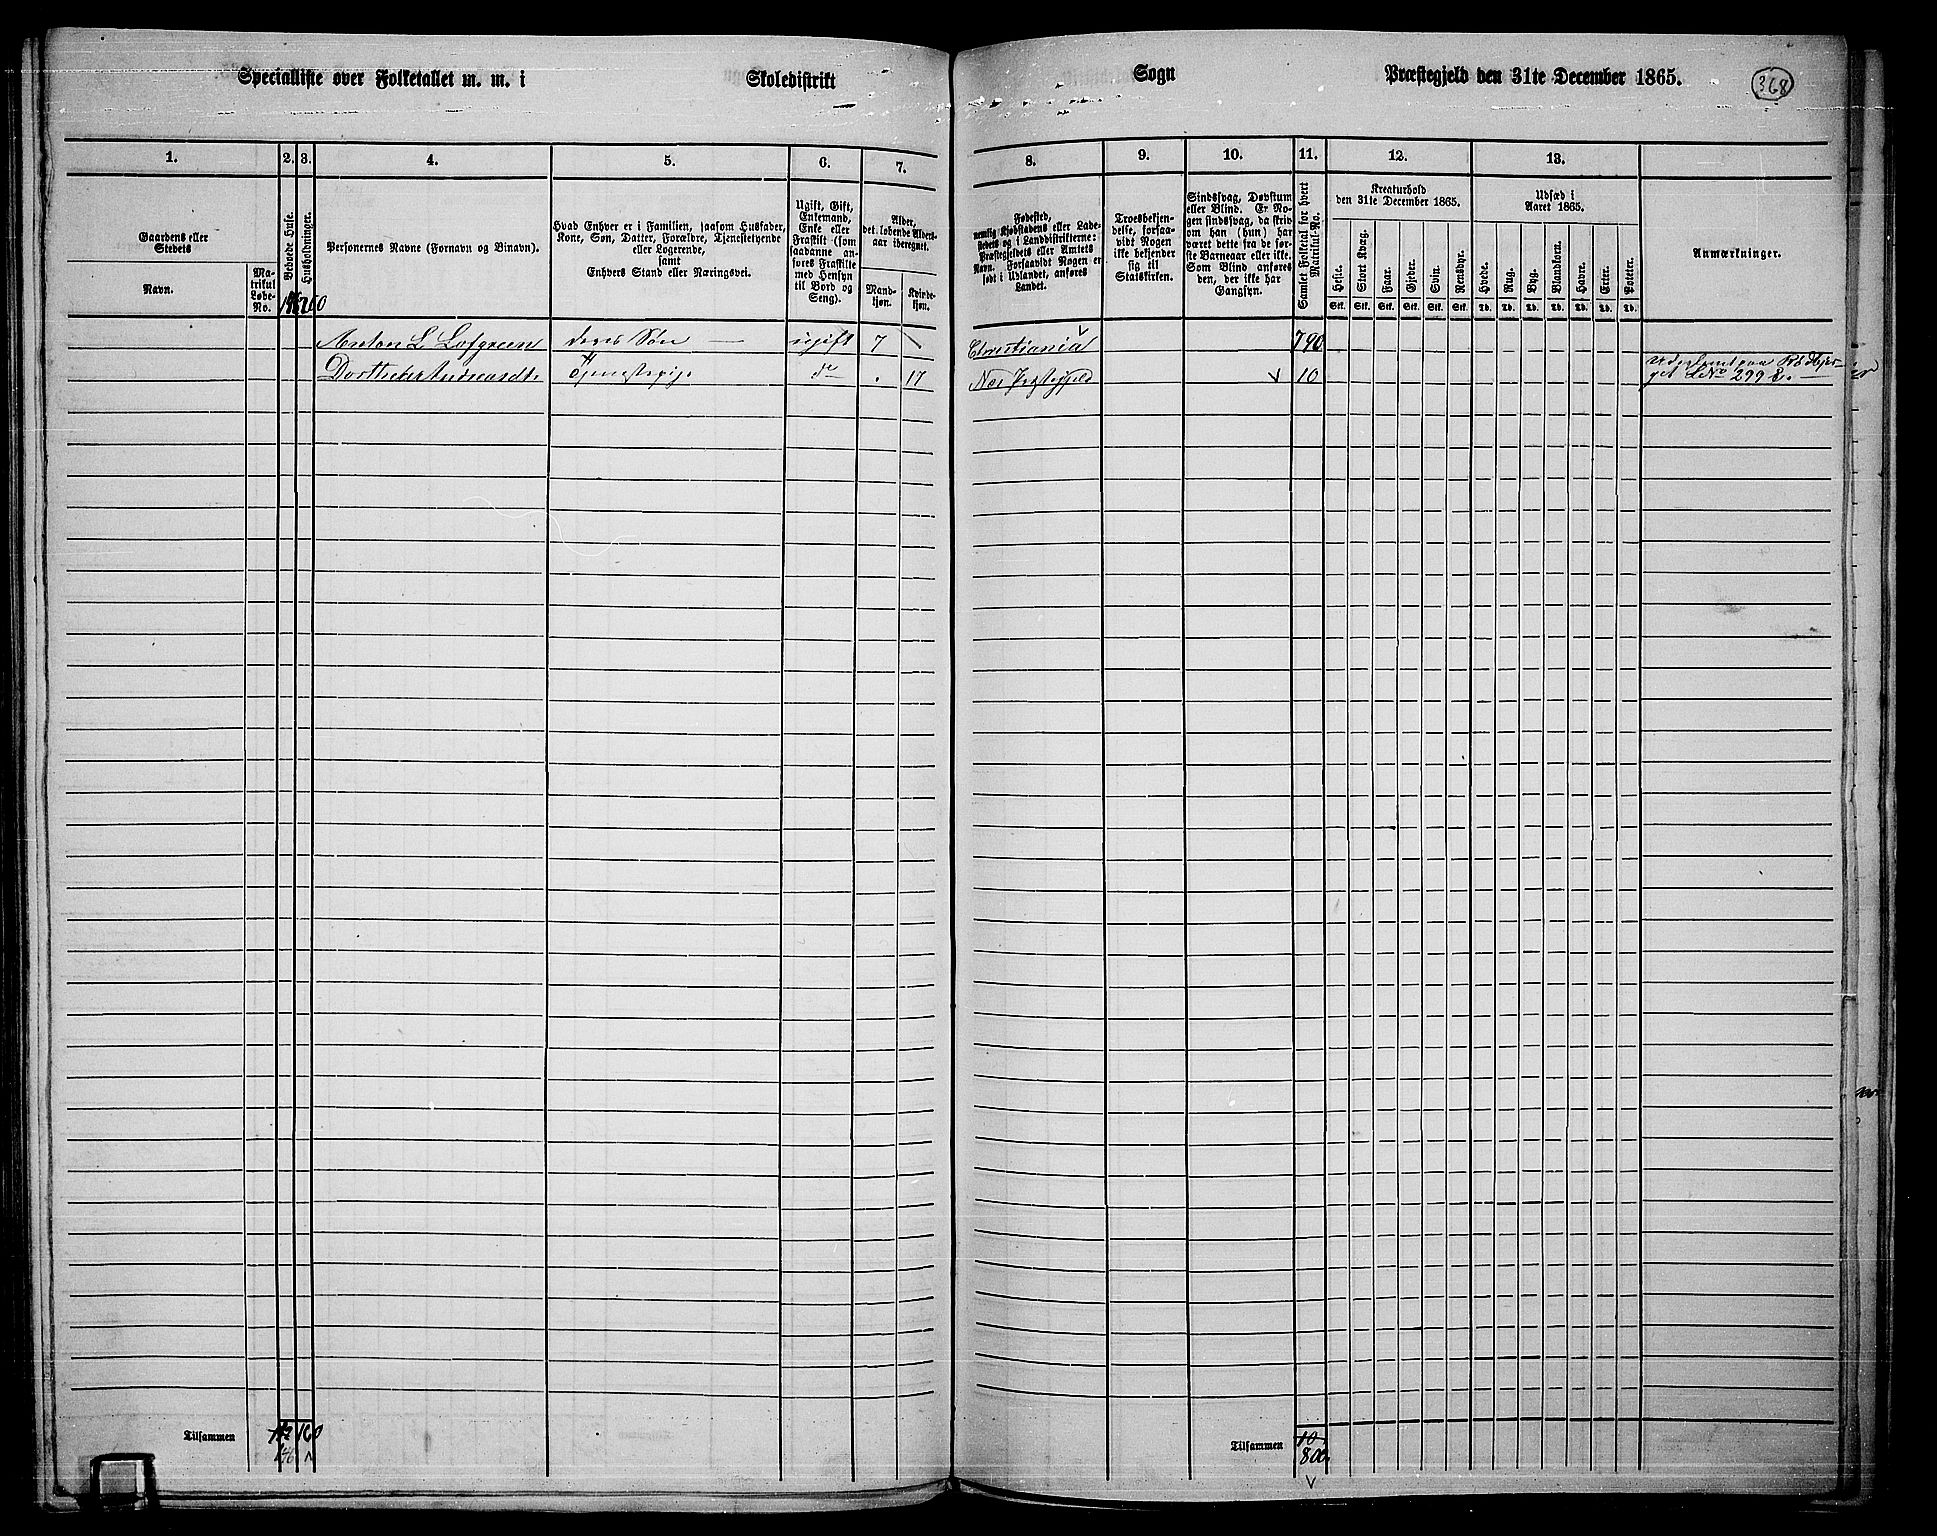 Specialliste over Folketallet m. m. i Skoledistrikt Sogn Præstegjeld den 31te December 1865.
368
1. 2. 3. 4. 5. 6. 7. 8. 9. 10. 11. 12. 13.
Gaardens eller
Stedets
Navn.
Ma-
trikul
Løbe-
No.
Beboede Huse.
Husholdninger.
Personernes Navne (Fornavn og Binavn).
Hvad Enhver er i Familien, saasom Husfader,
Kone, Søn, Datter, Forældre, Tjenestetyende
eller Logerende,
samt
Enhvers Stand eller Næringsvei.
Ugift, Gift,
Enkemand,
Enke eller
Fraskilt (som
saadanne an-
føres Fraskilte
med Hensyn
til Bord og
Seng).
Alder,
det løbende Alders-
aar iberegnet.
Mand-
kjøn.
Kvinde-
kjøn.
Fødested,
nemlig Kjøbstadens eller Lade-
stedets og i Landdistrikterne:
Præstegjeldets eller Amtets
Navn. Forsaavidt Nogen er
født i Udlandet, anføres
Landet.
Troesbekjen-
delse, forsaa-
vidt Nogen
ikke bekjender
sig til
Statskirken.
Sindssvag, Døvstum
eller Blind. Er No-
gen sindssvag, da skriv
om han (hun) har
været dette fra de før-
ste Barneaar eller ikke.
Som Blind anføres
den, der ikke har
Gangsyn.
Samlet Folketal for hvert
Matrikul-No.
Kreaturhold
den 31te December 1865.
Heste. Stort Kvæg. Faar. Gjeder. Svin. Rensdyr.
Stk. Stk. Stk. Stk. Stk. Stk.
Udsæd i
Aaret 1865.
Hvede. Rug. Byg. Blandkorn. Havre. Erter. Poteter.
Td. Td. Td. Td. Td. Td. Td.
Anmærkninger.
160
Anton L. Lofgreen deres Søn — ugift 7 Christiania 790
Andreasdt. Tjenestepige do 17 Næs Prstegjeld 10
LNo 299
Tilsammen 160 Tilsammen 10
146 800